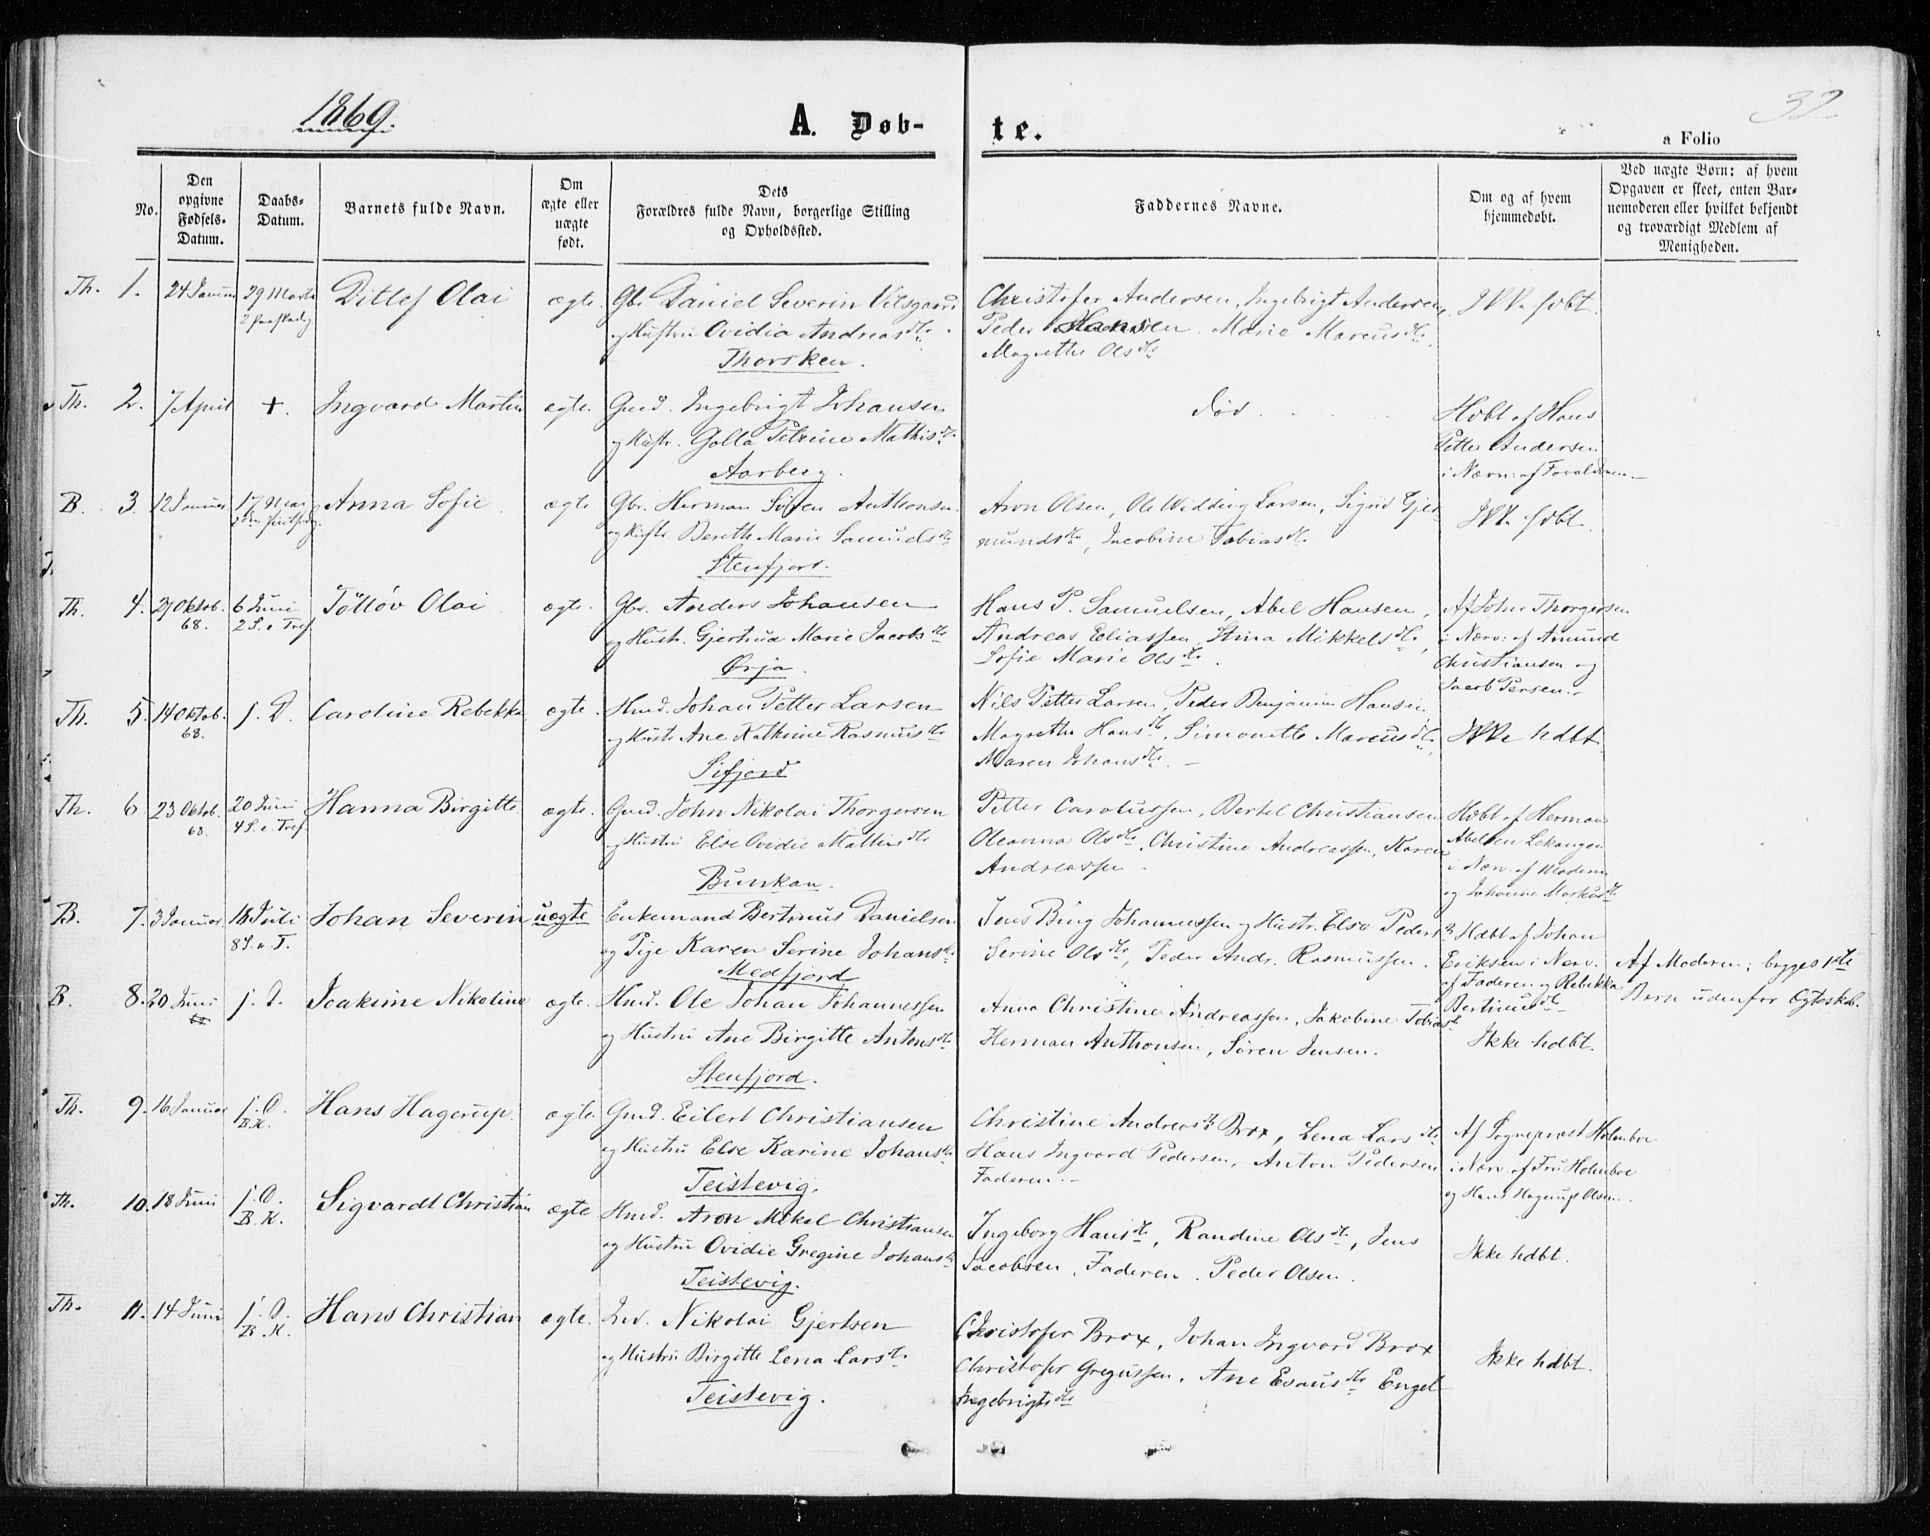 1869.
A. Døb-
te.
32
a Folio
No.
Den opgivne Fødsels-Datum.
Daabs-Datum.
Barnets fulde Navn.
Om ægte eller uægte født.
Dets Forældres fulde Navn, borgerlige Stilling og Opholdssted.
Faddernes Navne.
Om og af hvem hjemmedøbt.
Ved uægte Børn: af hvem Opgaven er skeet, enten Barnemoderen eller hvilket bekjendt og troværdigt Medlem af Menigheden.
Th. 1. 24 Januar 29 Marts Ditlef Olai ægte. Gbr. Daniel Severin Vilsgaard Christofer Andersen, Ingebrigt Andersen, Ikke hdbt.
2 Paaskedg og Hustru Ovidia Andreasdtr. Peder Hansen. Marie Marcusdtr.
Thorsken. Magrethe Olsdtr
Th. 2. 7 April +. Ingvard Martin ægte. Gmd. Ingebrigt Johansen død. Hdbt af Hans
og Hustr. Golla Petrine Mathisdtr. Petter Andersen
Aarberg. i Nærv: af Forældrene
B. 3. 12 Januar 17 Mai Anna Sofie ægte Gbr. Herman Søren Anthonsen Aron Olsen, Ole Widding Larsen, Sigrid Gjer- Ikke hdbt.
2den Pintsedg og Hustr. Bereth Marie Samuelsdtr mundsdtr, Jacobine Tobiasdtr
Stenfjord.
Th. 4. 27 Oktob. 6 Juni Tølløv Olai ægte. Gbr. Anders Johansen Hans P. Samuelsen, Abel Hansen, Af John Thorgersen
68. 2 S. e. Tref. og Hustr. Gjertrud Marie Jacobsdtr Andreas Eliassen, Stina Mikkelsdtr, i Nærv: af Amund
Ørja. Sofie Marie Olsdtr. Christiansen og
Jacob Persen.
Th. 5. 14 Oktob. s. D. Caroline Rebekka ægte. Hmd. Johan Petter Larsen Nils Petter Larsen, Peder Benjamin Hansen
68. og Hustr Ane Kathrine Rasmusdtr Magrethe Hansdtr, Simonette Marcusdtr, Ikke hdbt
Sifjord Maren Johansdtr.
Th. 6 23 Oktob. 20 Juni Hanna Birgitte. ægte. Gmd. John Nikolai Thorgersen Petter Carolussen, Bertel Christiansen Hdbt af Herman
68. 4 S. e. Tref. og Hustru Else Ovidie Mathisdtr Oleanna Olsdtr, Christine Andreassen, Karen Abelsen Lekangen
Bunkan. Andreassen. i Nærv. af Moderen
og Johanne Markusdtr
B. 7. 3 Januar 18 Juli Johan Severin uægte Enkemand Bertinus Danielsen Jens Bing Johannessen og Hustr. Else Pedersdtr Hdbt af Johan
8 S. e. T. og Pige Karen Serine Johansdtr Serine Olsdtr, Peder Andr. Rasmussen. Eriksen i Nærv. Af Moderen; begges 1ste
Medfjord af Faderen og Rebekka Barn udenfor Egteskab.
Bertinusdtr
B. 8. 20 Juni s. D. Joakime Nikoline ægte. Hmd. Ole Johan Johannessen Anna Christine Andreassen, Jakobine Tobiasdtr
og Hustru Ane Birgitte Antonsdtr Herman Anthonsen, Søren Jensen. Ikke hdbt.
Stenfjord.
Th. 9. 16 Januar s. D. Hans Hagerup. ægte. Gmd. Eilert Christiansen Christine Andreasdtr Brox, Lena Larsdtr Af Sogneprest Holmboe
B. K. og Hustru Else Karine Johansdtr Hans Ingvard Pedersen, Anton Pedersen i Nærv. af Fru Holmboe
Teistevig. Faderen. og Hans Hagerup Olsen.
Th. 10. 18 Juni s. D. Sigvardt Christian ægte Hmd. Aron Mikal Christiansen Ingeborg Hansdtr, Randine Olsdtr, Jens
B. K. og Hustru Ovidie Gregine Johansdtr Jacobsen, Faderen. Peder Olsen. Ikke hdbt.
Teistevig.
Th. 11. 14 Juni s. D. Hans Christian ægte. Ind. Nikolai Gjertsen Christofer Brox, Johan Ingvard Brox
B. K. og Hustru Birgitte Lena Larsdtr Christofer Gregussen, Ane Esausdtr Engel Ikke hdbt.
Teistevig. Ingebrigtsdtr